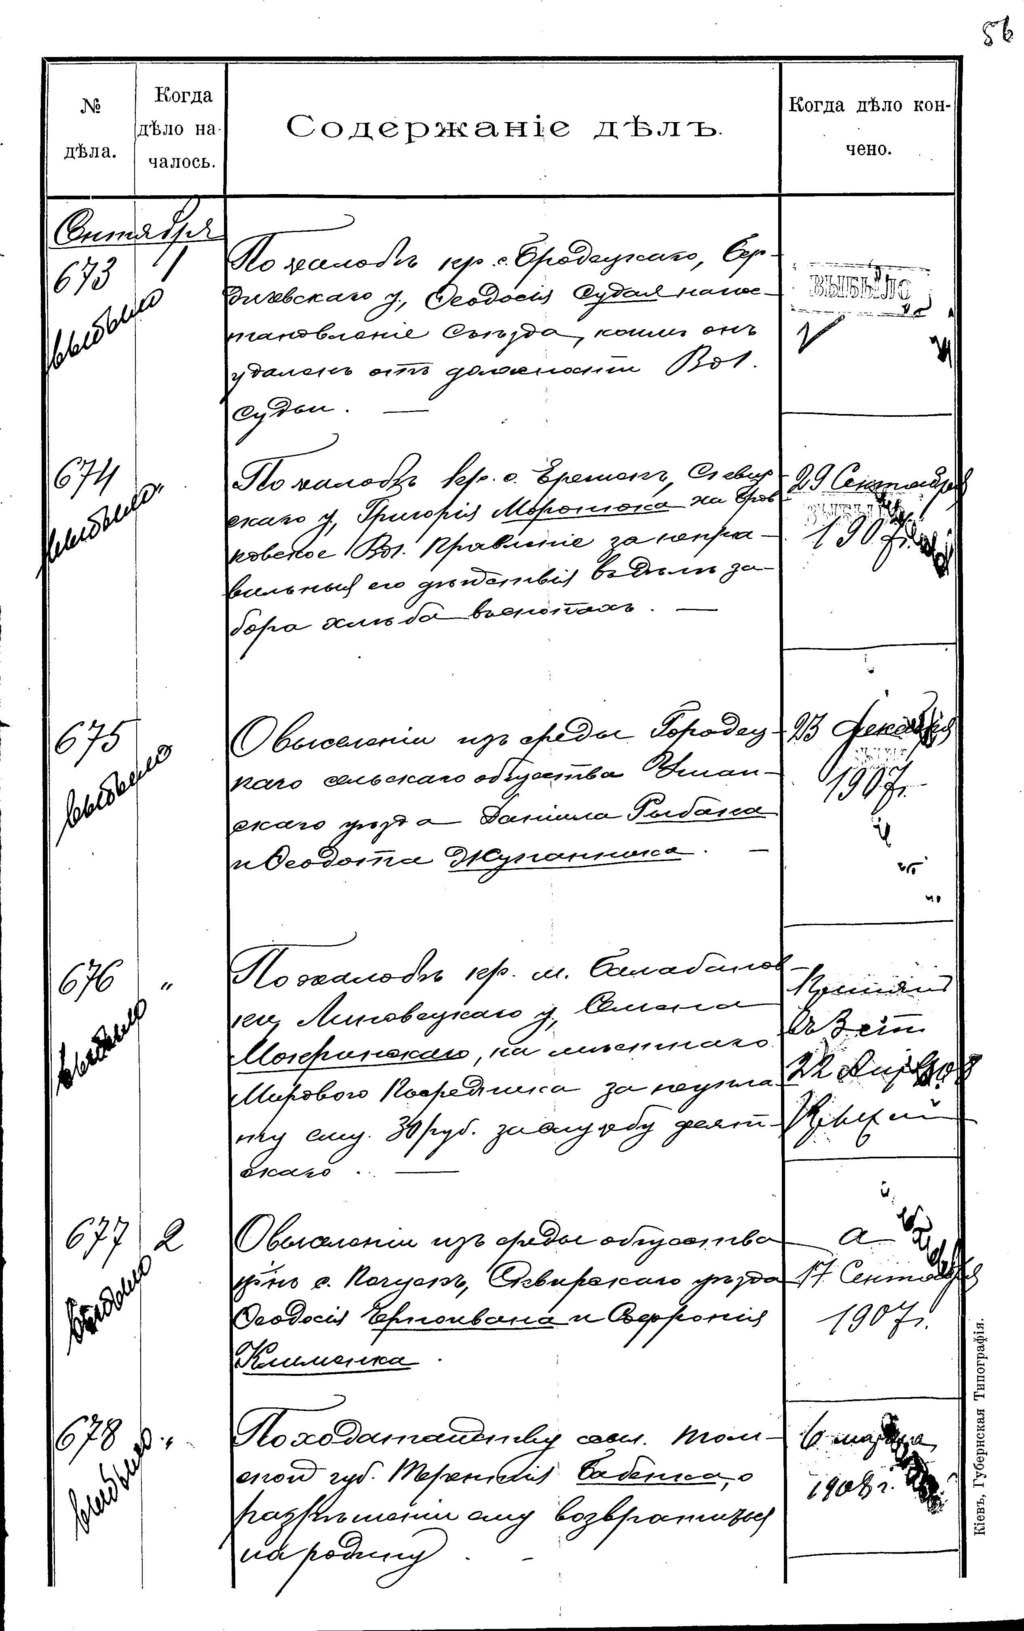 56
№ дѣла.
Когда дѣло на-
чалось.
Содержаніе дѣлъ.
Когда дѣло кон-
чено.
Сентября
673 1
выбыло
По жалобѣ кр. с. Бродецкаго, Бер-
дичевскаго у, Ѳеодосія Судая на пос-
тановленіе Съѣзда, коимъ онъ
удаленъ отъ должности Вол.
судьи. —
ВЫБЫЛО
674 "
выбыло
По жалобѣ кр. с. Ерешекъ, Сквир-
скаго у, Григорія Моронюка на
Вол. Правленіе за непра-
вильныя его дѣйствія въ дѣлѣ за-
бора хлѣба въ снопахъ. —
29 Сентября
1907г.
675
выбыло
О выселеніи изъ среды Городец-
каго сельскаго общества Уман-
скаго уѣзда Даніила Рыбака
и Ѳеодота Жупанника. —
23 Декабря
1907г.
676 "
выбыло
По жалобѣ кр. м. Балабанов-
ки, Липовецкаго у, Семена
Мокринскаго, на мѣстнаго
Мирового Посредника за неупла-
ту ему 30 руб. за службу десят-
скаго. —
22 Апр 908
677 2
выбыло
О выселеніи изъ среды общества
кр-нъ с. Почуекъ, Сквирскаго уѣзда
Ѳеодосія Чернивана и Софронія
Клименка.
17 Сентября
1907г.
678 "
выбыло
По ходатайству ссыл. Том-
ской губ. Терентія Бабенка, о
разрѣшеніи ему возвратиться
на родину.
6 марта
1908 г.
Кіевъ, Губернская Типографія.